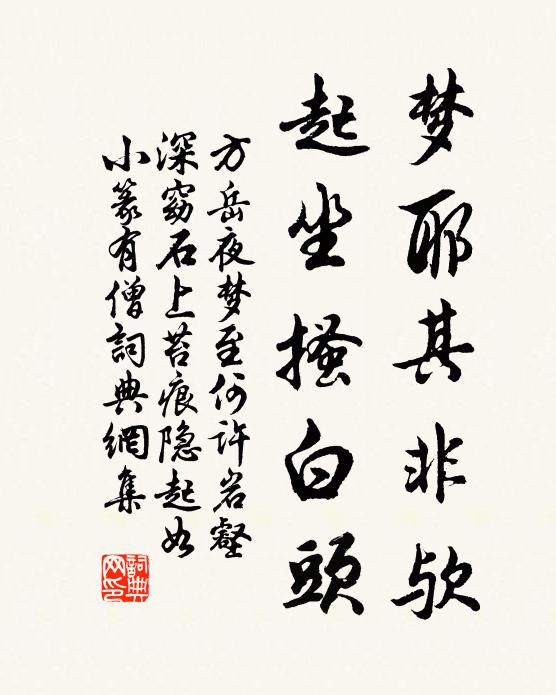 梦耶其非欤
起坐搔白頭
方岳夜梦至何许岩壑
深窈石上苔痕隐起如
小篆有僧詞典網集
詞典
网印